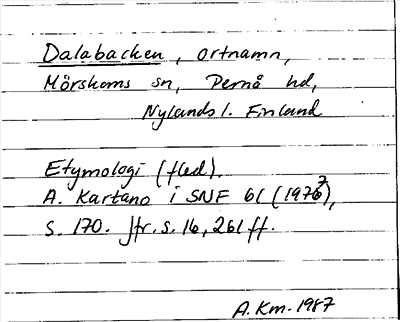 Dalabacken, ortnamn,
Mörskoms sn, Pernå hd,
Nylands l. Finland
Etymologi (fled).
A. Kartano i SNF 61 (1977),
s. 170. Jfr. s. 16, 261 ff.
A. Km. 1987